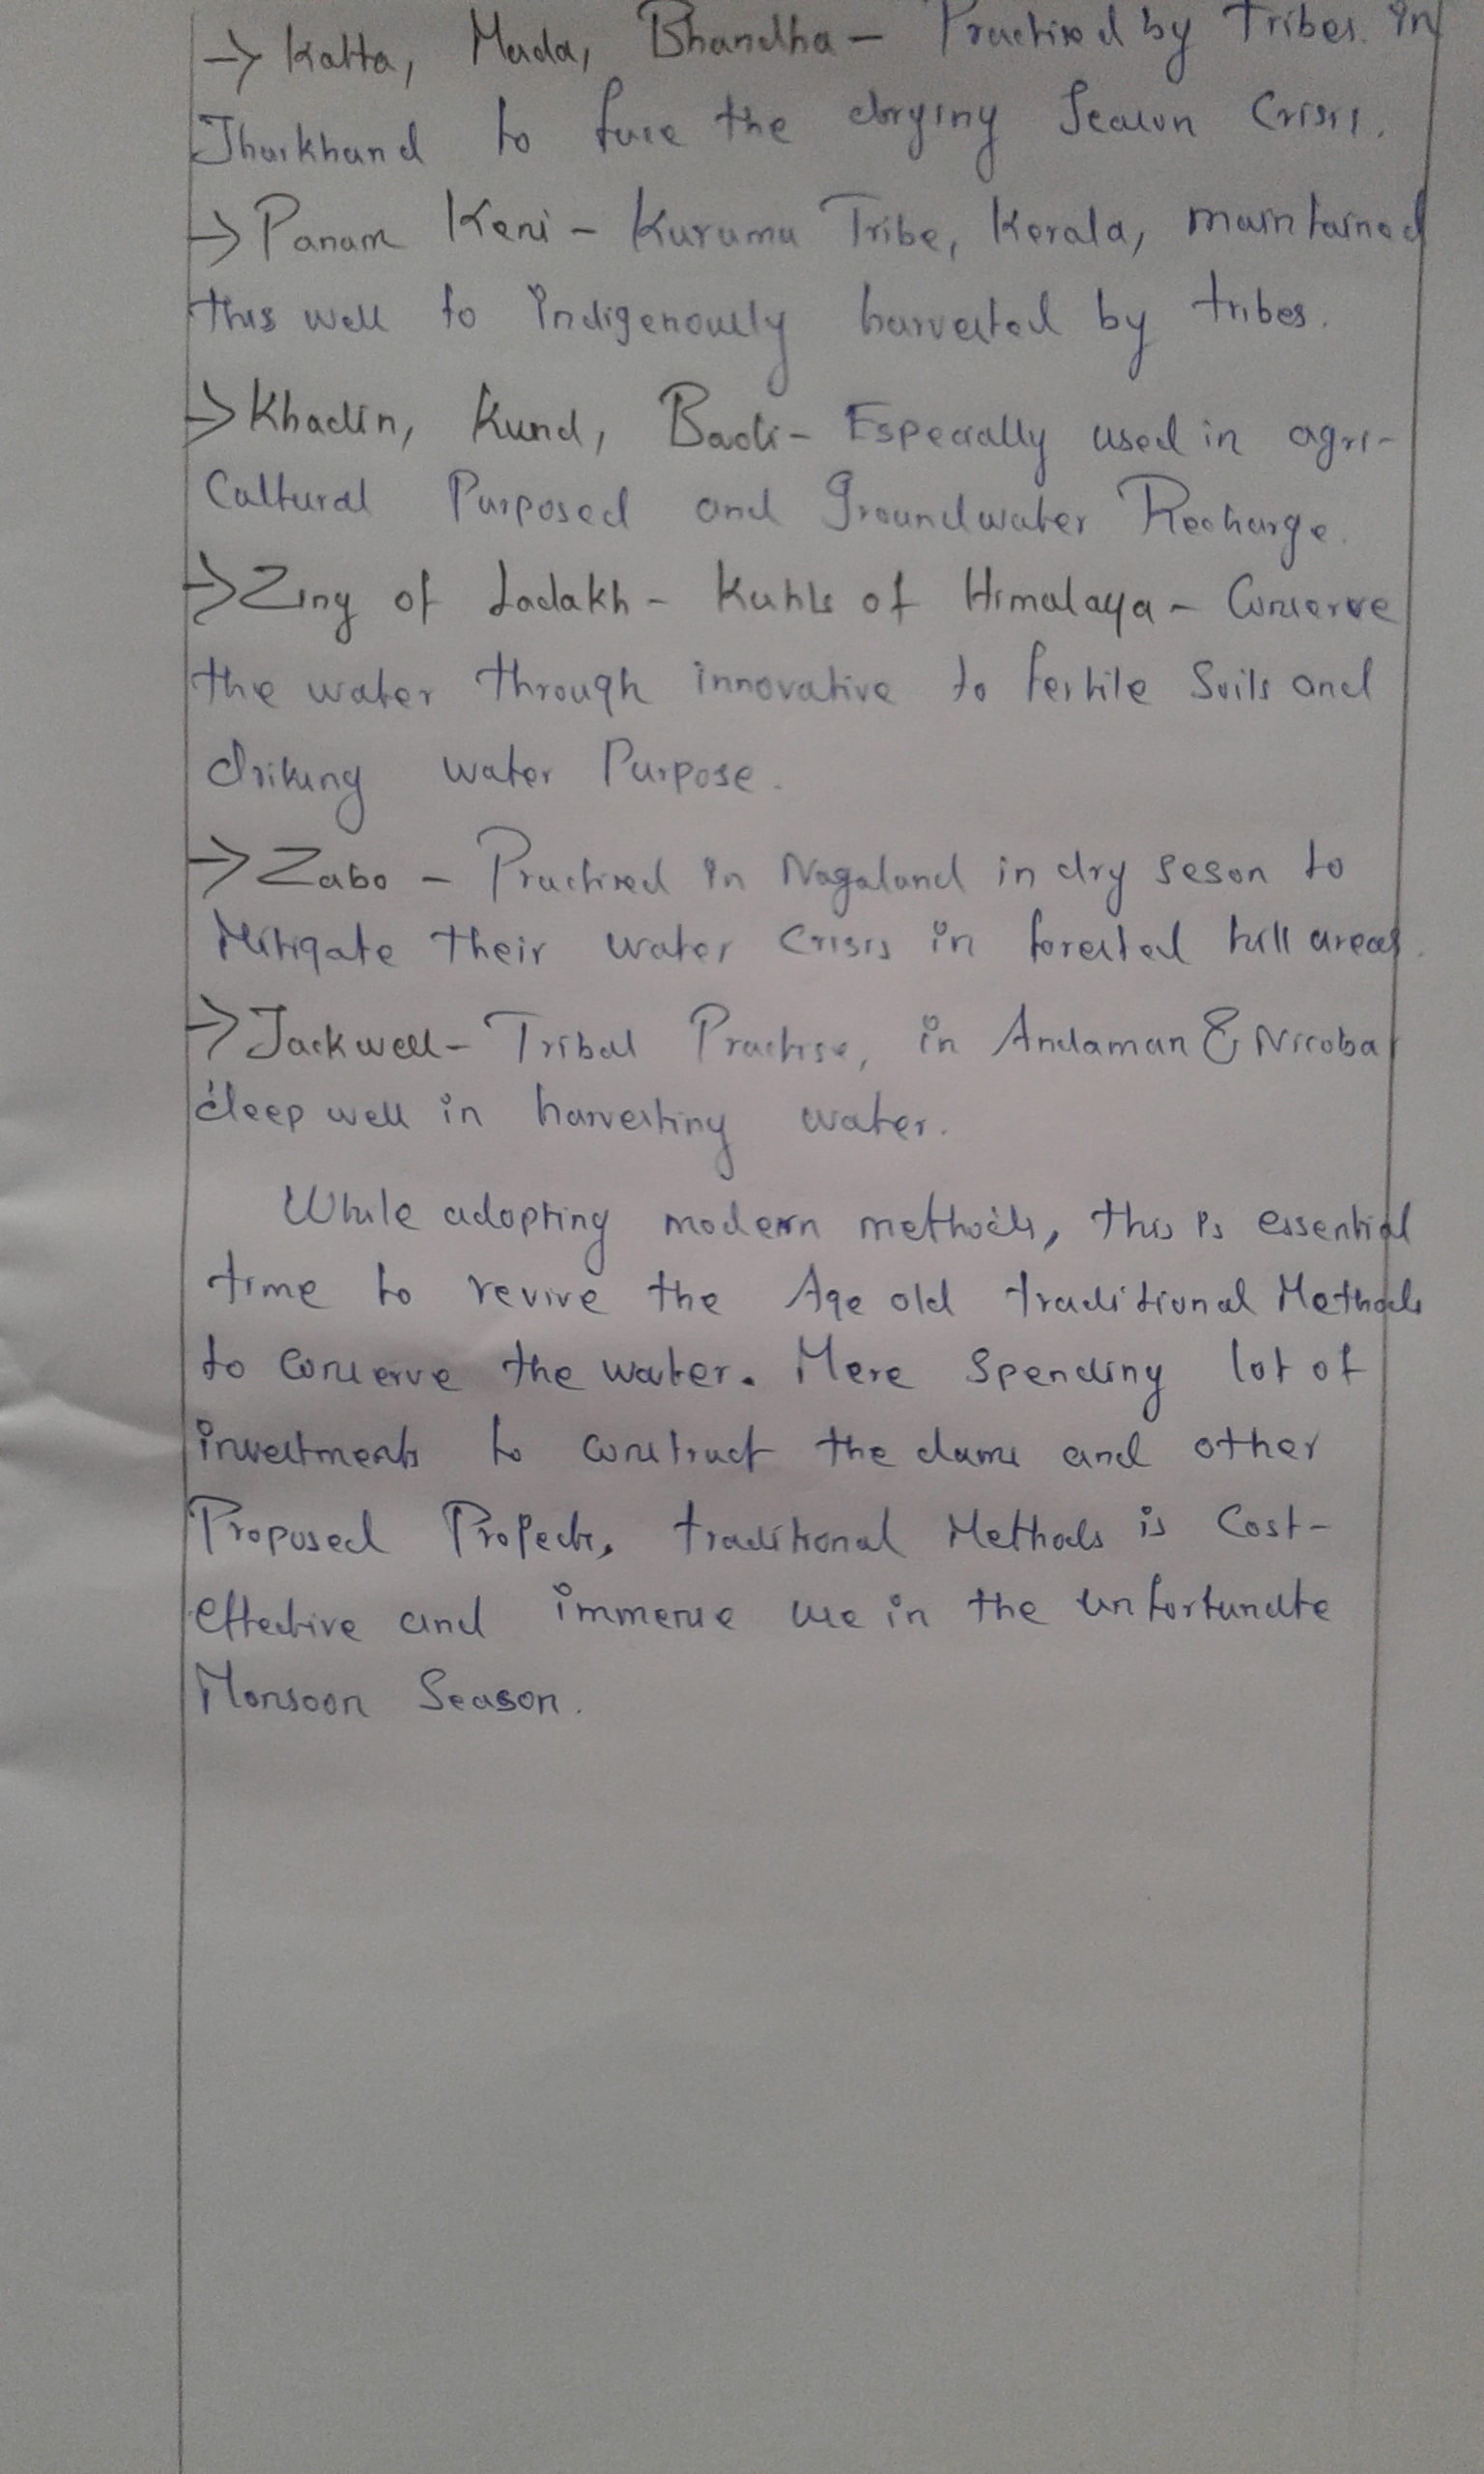 → Katta, Mada, Bhandha - Practised by Tribes in
Jharkhand to face the drying Season Crisis.
→ Panam Keni - Kuruma Tribe, Kerala, maintained
this well to indigenously harvested by tribes.
→ Khadin, Kund, Baoli - Especially used in agri-
Cultural Purposed and Groundwater Recharge.
→ Zing of Ladakh - Kuhls of Himalaya - Conserve
the water through innovative to fertile Soils and
driking water Purpose.
→ Zabo - Practised in Nagaland in dry seson to
Mitigate their water Crisis in forested hill areas.
→ Jackwell - Tribal Practise, in Andaman & Nicobar
deep well in harvesting water.
While adopting modern methods, this is essential
time to revive the Age old traditional Methods
to conserve the water. Mere Spending lot of
investments to construct the dams and other
Proposed Projects, traditional Methods is Cost-
effective and immense use in the unfortunate
Monsoon Season.